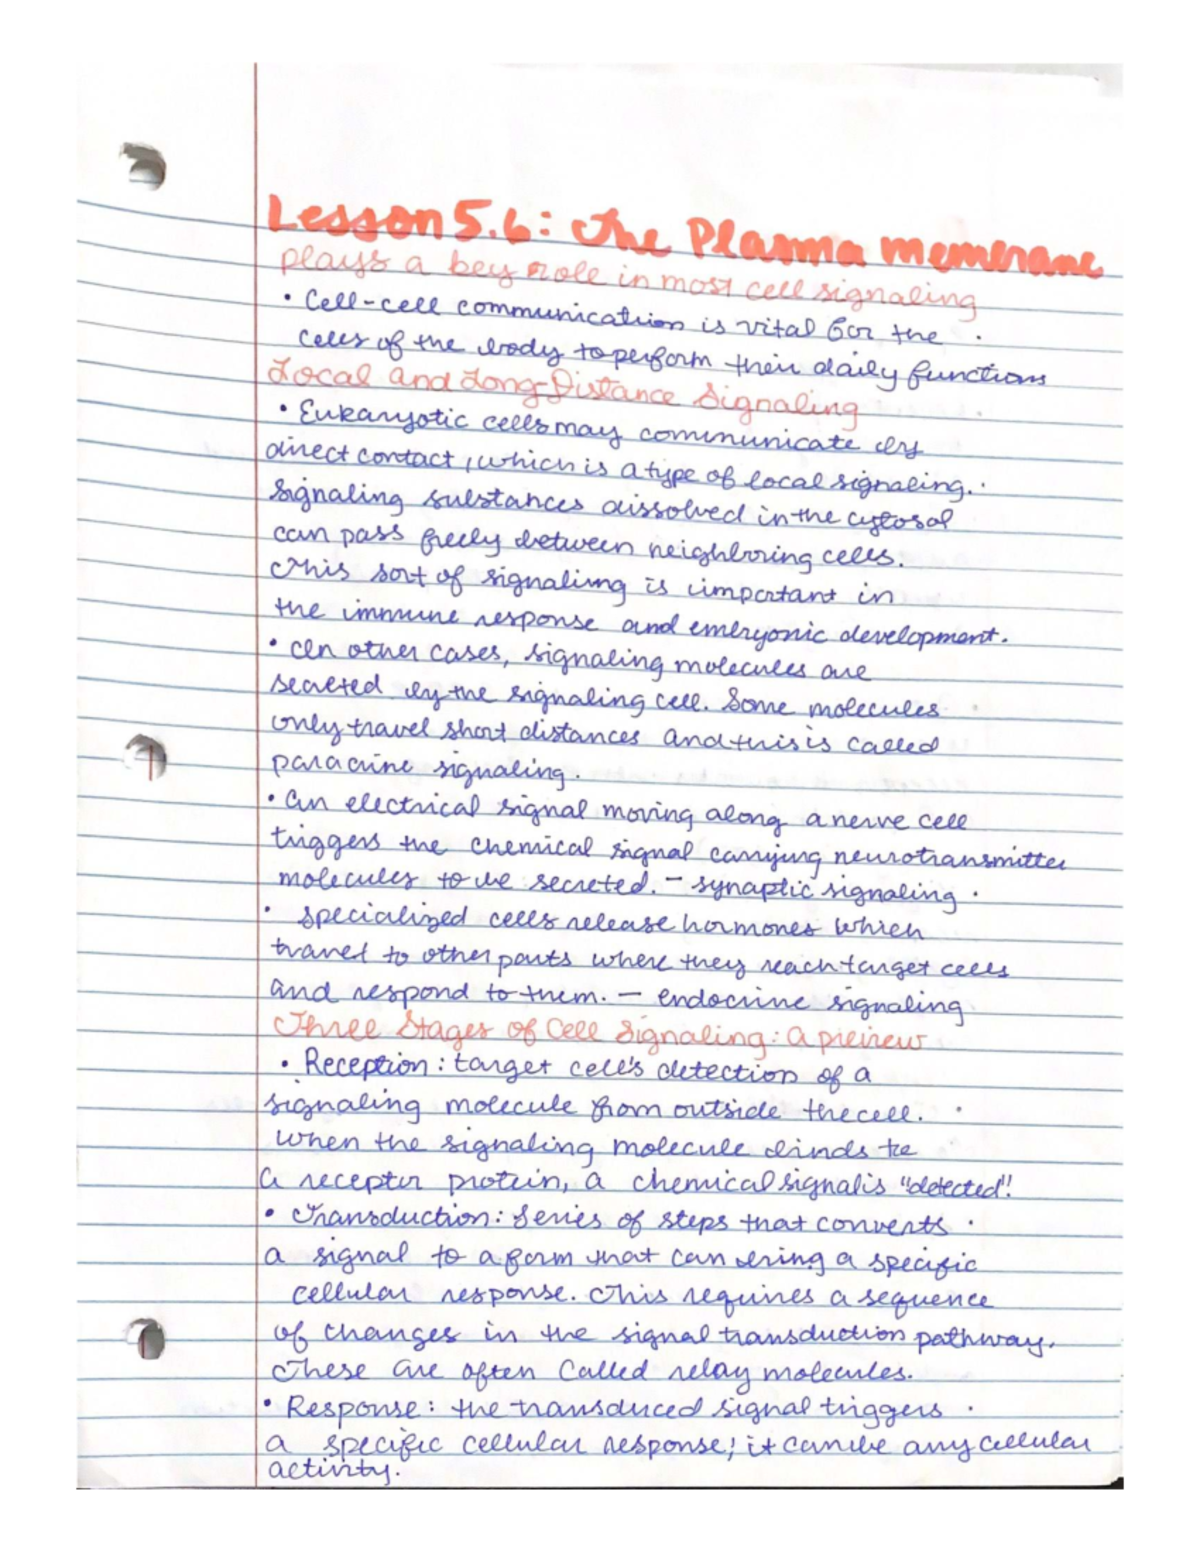 Lesson 5.6: The Plasma memebrane
plays a key role in most cell signaling
• Cell-cell communication is vital for the
cells of the body to perform their daily functions
Local and Long-Distance Signaling
• Eukaryotic cells may communicate by
direct contact, which is a type of local signaling.
Signaling substances dissolved in the cytosol
can pass freely between neighboring cells.
This sort of signaling is important in
the immune response and embryonic development.
• In other cases, signaling molecules are
secreted by the signaling cell. Some molecules
only travel short distances and this is called
paracrine signaling.
• An electrical signal moving along a nerve cell
triggers the chemical signal carrying neurotransmitter
molecules to be secreted. - synaptic signaling
• specialized cells release hormones which
travel to other parts where they reach target cells
and respond to them. - endocrine signaling
Three Stages of Cell Signaling: A preview
• Reception: target cell's detection of a
signaling molecule from outside the cell.
When the signaling molecule binds to
a receptor protein, a chemical signal is "detected".
• Transduction: Series of steps that converts
a signal to a form that can bring a specific
cellular response. This requires a sequence
of changes in the signal transduction pathway.
These are often called relay molecules.
• Response: the transduced signal triggers
a specific cellular response; it can be any cellular
activity.